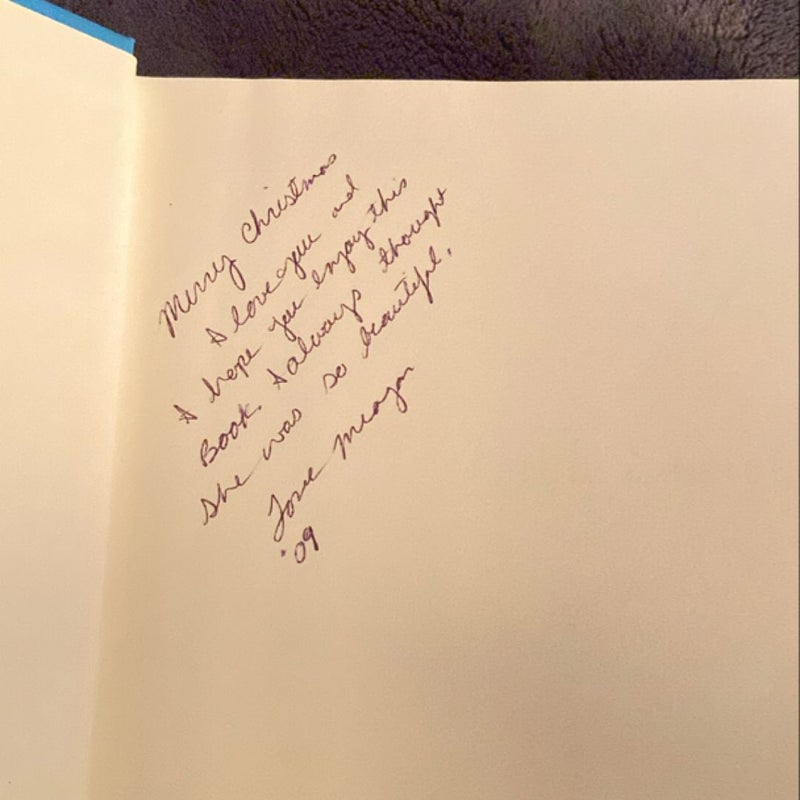 Merry Christmas
I love you and
I hope you enjoy this
Book. I always thought
she was so beautiful.
Love Meagan
'09